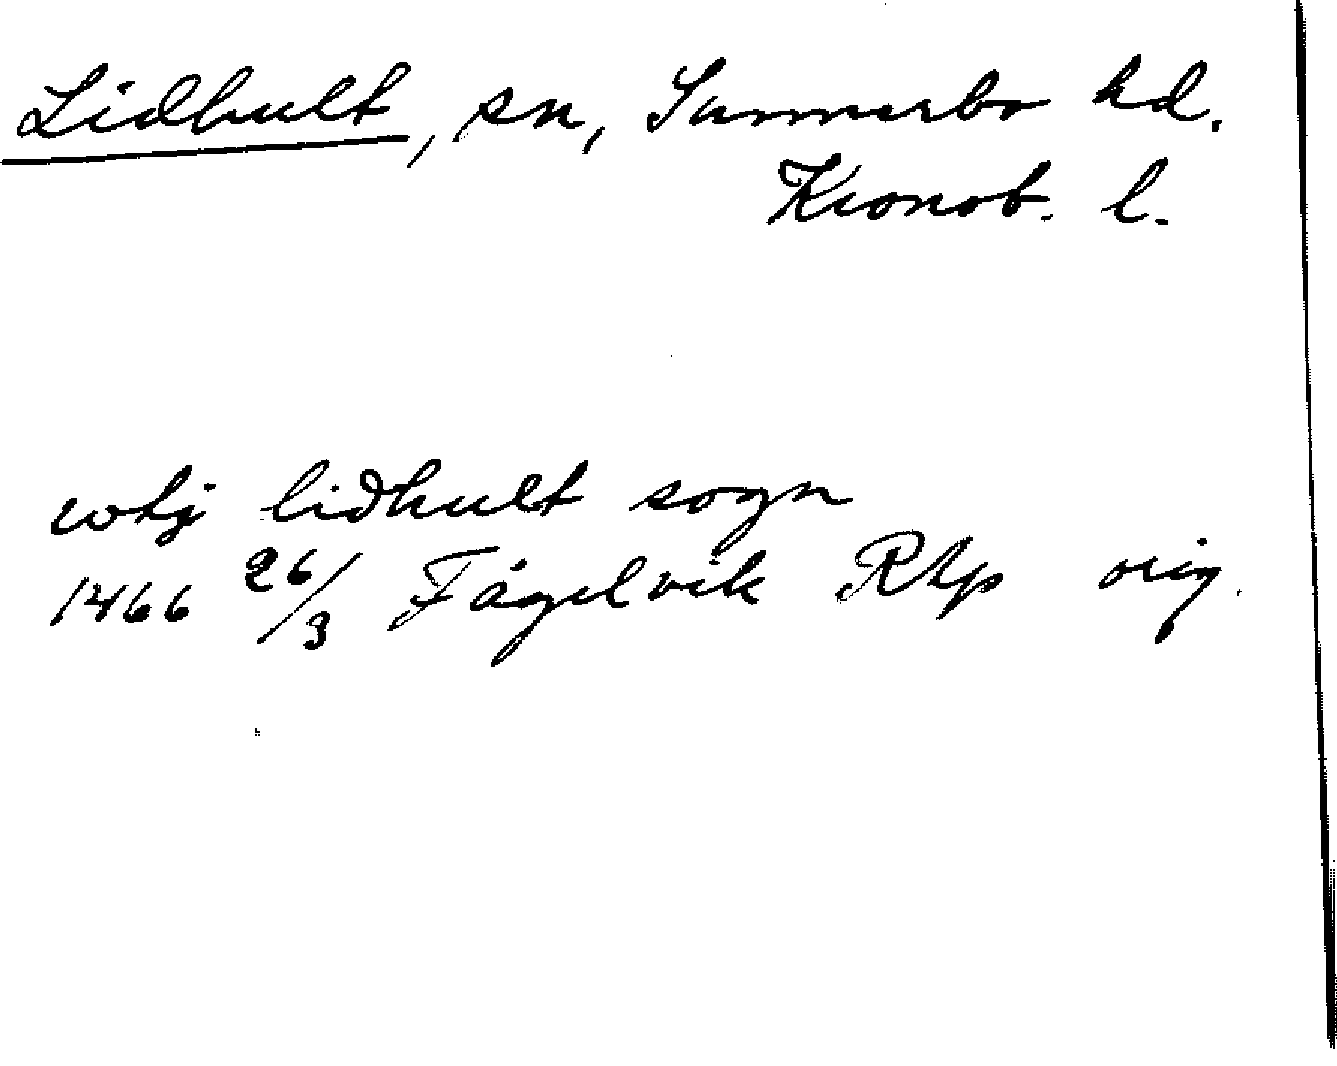 Lidhult, sn, Sunnerbo hd.
Kronob. l.
lidhult sogn
1466 26/3 Fågelvik Rhp orig.